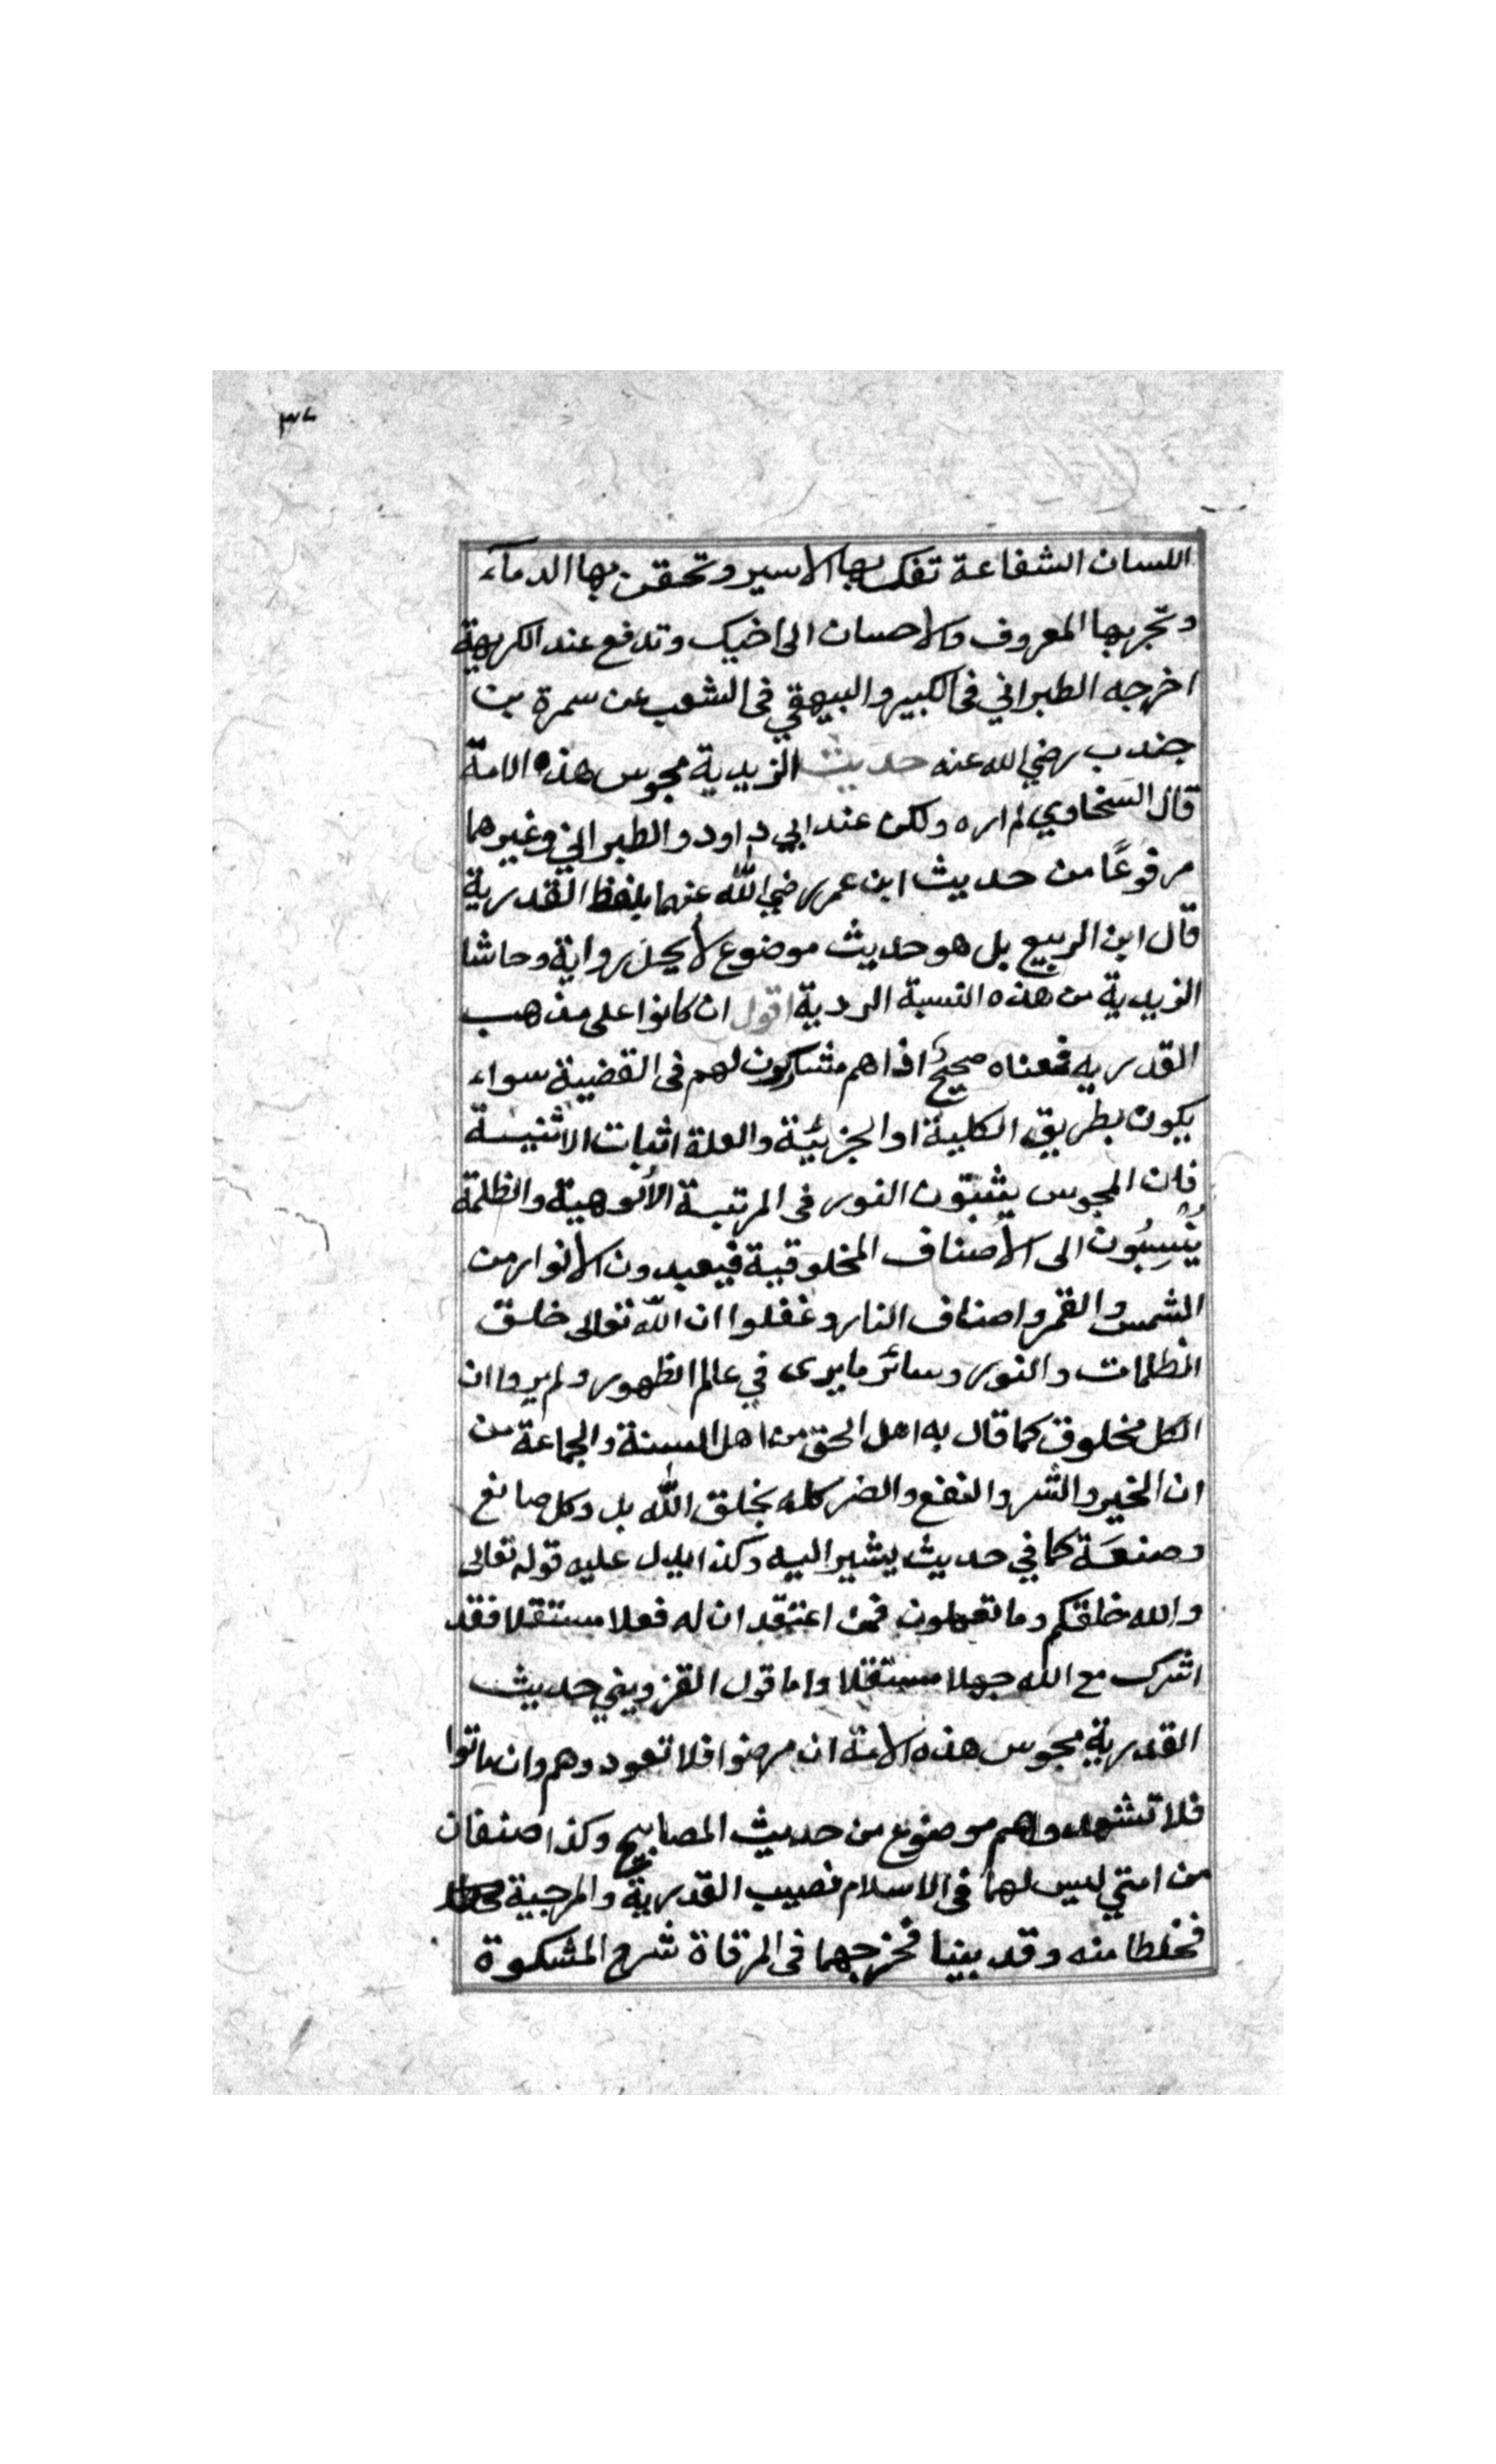 ٣٧
اللسان الشفاعة تفك بها الاسير وتحقن بها الدماء
وتجر بها المعروف والاحسان الى اخيك وتدفع عند الكريهة
اخرجه الطبراني في الكبير والبيهقي في الشعب عن سمرة بن
جندب رضي الله عنه حديث الزيدية مجوس هذه الامة
قال السخاوي لم اره ولكن عند ابي داود والطبراني وغيرهما
مرفوعًا من حديث ابن عمر رضي الله عنهما بلفظ القدرية
قال ابن الربيع بل هو حديث موضوع لا يحل رواية وحاشا
الزيدية من هذه النسبة الردية اقول ان كانوا على مذهب
القدريه فمعناه صحيح اذا هم مشاركون لهم في القضية سواء
يكون بطريق الكلية او الجزئية والعلة اثبات الاثنيىة
فان المجوس يثبتون النور في المرتبة الألوهية والظلمة
يُنسِبُون الى الأصناف المخلوقية فيعبدون الانوار من
الشمس والقمر واصناف النار وغفلوا ان الله تعالى خلق
الظلمات والنور وسائر ما يرى في عالم الظهور ولم يروا ان
الكل مخلوق كما قال به اهل الحق من اهل السنة والجماعة من
ان الخير والشر والنفع والضر كله بخلق الله بل وكل صانع
وصنعَة كما في حديث يشير اليه وكذا يدل عليه قوله تعالى
والله خلقكم وما تعملون فمن اعتقد ان له فعلا مستقلا فقد
اشرك مع الله جهلا مستقلا واما قول القزويني حديث
القدرية مجوس هذه الامة ان مرضوا فلا تعودوهم وان ماتوا
فلا تشهدواهم موضوع من حديث المصابيح وكذا صنفان
من امتي ليس لهما في الاسلام نصيب القدرية والمرجية
فخطا منه وقد بينا مخرجهما في المرقاة شرح المشكوة